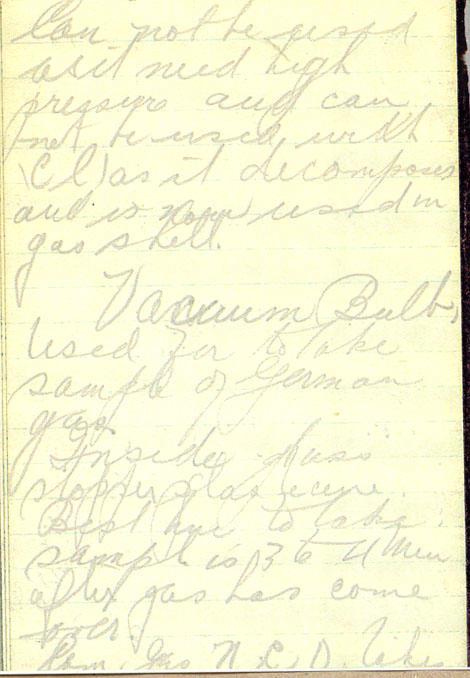 Can not be used
as it need high
pressure and can
not be used with
(Cl) as it decomposes
and is now used in
gas shell.
Vacuum Bulb,
Used for to take
sample of German
gas
Inside glass
stopper glass
Best time to take
sample is 3 to 4 Min
after gas has come
over.
Com. Gas N. C. O. takes